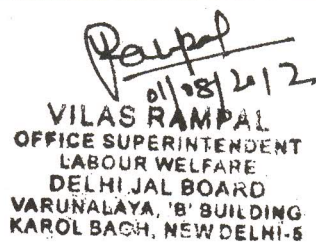 Rampal
01/08/2012
VILAS RAMPAL
OFFICE SUPERINTENDENT
LABOUR WELFARE
DELHI JAL BOARD
VARUNALAYA, 'B' BUILDING
KAROL BAGH, NEW DELHI-5